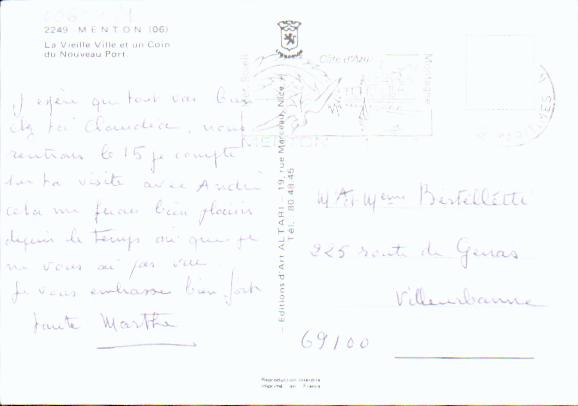 2249 MENTON (06)
La Vieille Ville et un Coin
du Nouveau Port.
J espère que tout vas bien
chez toi Claudia, nous
rentrons le 15 je compte
sur ta visite avec André
cela me feras bien plaisir
depuis le temps où que je
ne vous ai pas vue
Je vous embrasse bien fort
tante Marthe
– Editions d'Art ALTARI – 19, rue Marceau, Nice.
Tél. 80.49.45
Côte d'Azur
Montagne
MENTON
Mr et Meme Bertelletti
225 route de Genas
Villeurbanne
69100
Reproduction interdite
Imprimé en France